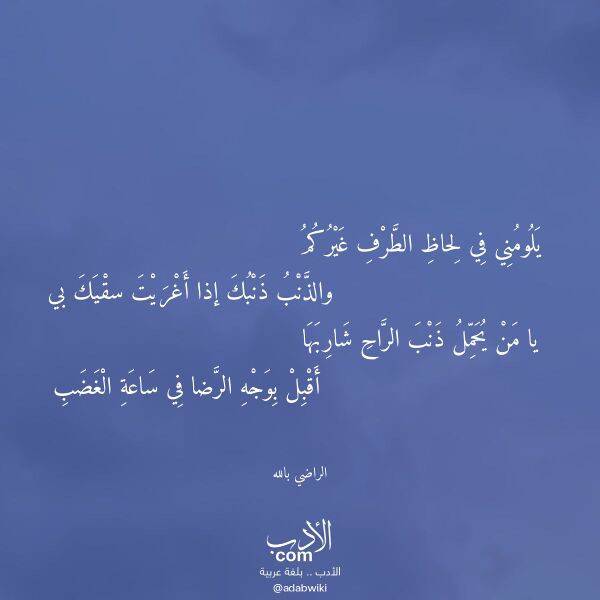 يَلُومُنِي فِي لِحاظِ الطَّرْفِ غَيْرُكُمُ
والذَّنْبُ ذَنْبُكَ إذا أَغْرَيْتَ سقْيَكَ بي
يا مَنْ يُحَمِّلُ ذَنْبَ الرَّاحِ شَارِبَهَا
أَقْبِلْ بِوَجْهِ الرَّضا فِي سَاعَةِ الْغَضَبِ
الراضي بالله
الأدب
com
الأدب .. بلغة عربية
@adabwiki